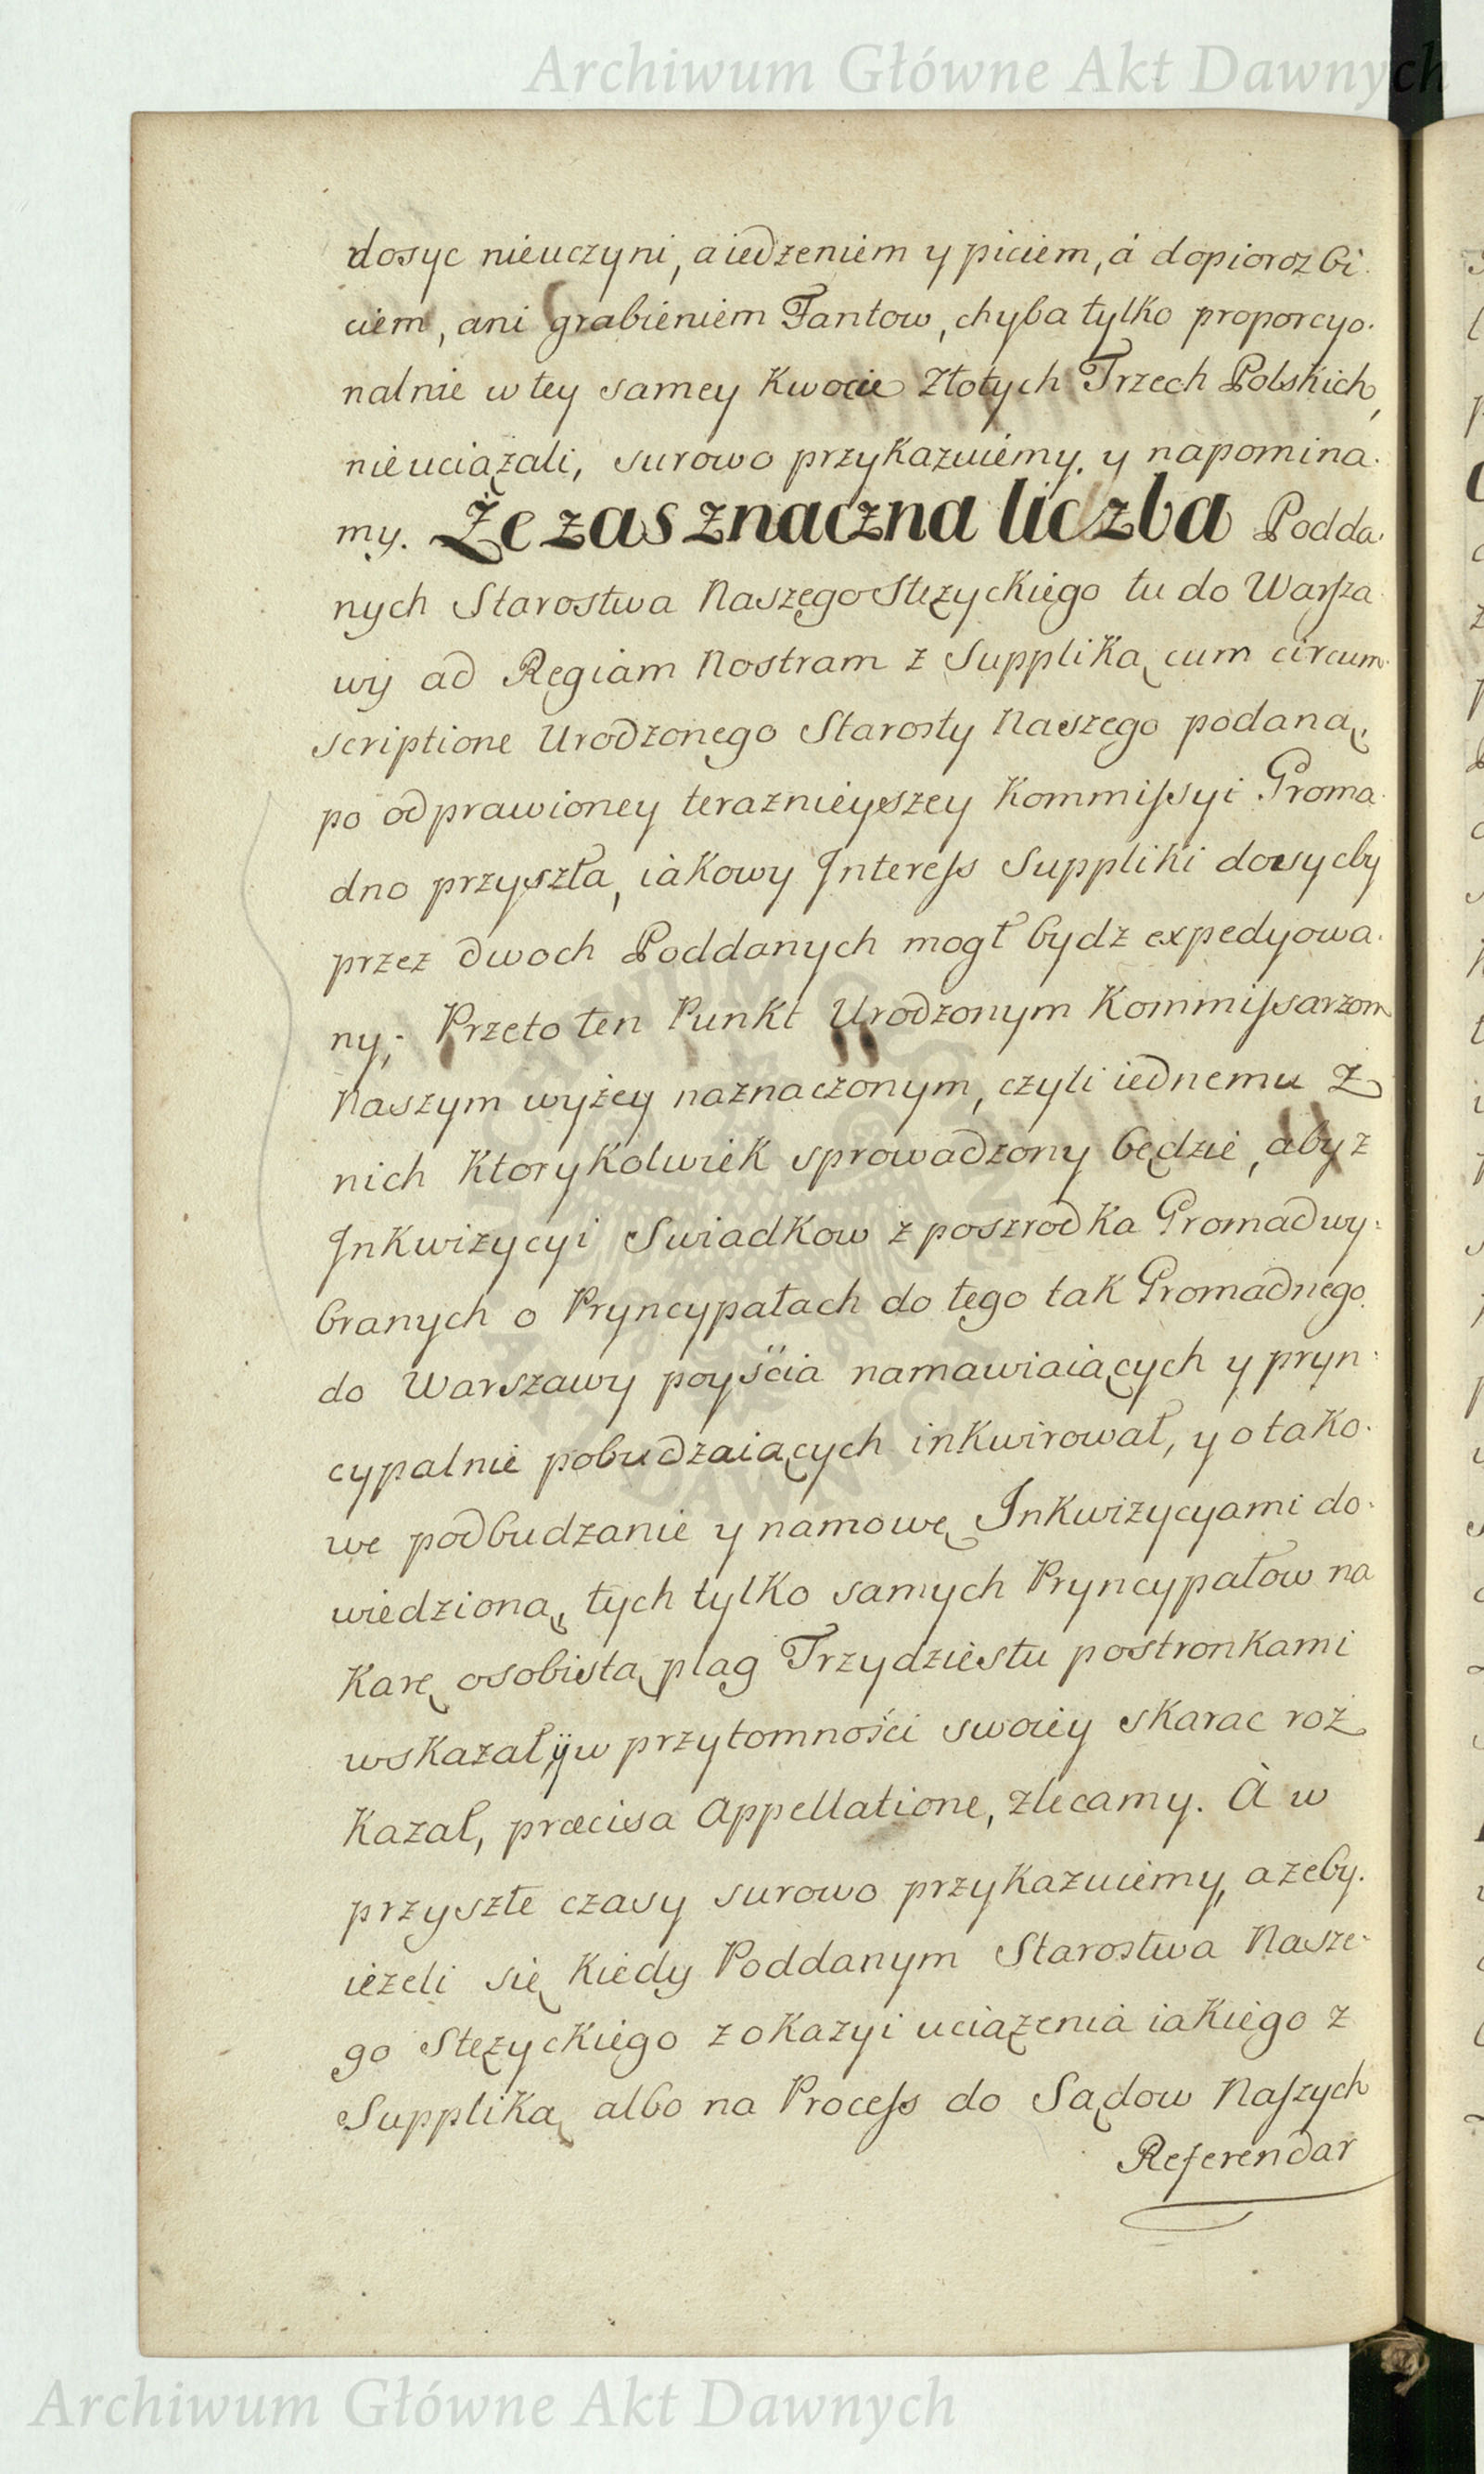 Archiwum Główne Akt Dawnych
dosyc nieuczyni, a iedzeniem y piciem, á dopioroz bi:
ciem, ani grabieniem Fantow, chyba tylko proporcyo:
nalnie w tey samey Kwocie Złotych Trzech Polskich,
nieuciązali, surowo przykazuiemy, y napomina:
my. Że zas znaczna liczba Podda:
nych Starostwa Naszego Stęzyckiego tu do Warsza:
wy ad Regiam Nostram z Suppliką cum circum:
scriptione Urodzonego Starosty Naszego podaną,
po odprawioney teraznieyszey Kommissyi Groma:
dno przyszła, iákowy Interess Suppliki dosycby
przez dwoch Poddanych mogł bydz expedyowa:
ny; Przeto ten Punkt Urodzonym Kommissarzom
Naszym wyżey naznaczonym, czyli iednemu z
nich ktorykolwiek sprowadzony będzie, aby z
Inkwizycyi Swiadkow z poszrodka Gromad wy:
branych o Pryncypałach do tego tak Gromadnego
do Warszawy poyścia namawiaiących y pryn:
cypalnie pobudzaiących inkwirował, y o tako:
we podbudzanie y namowę Inkwizycyami do:
wiedzioną, tych tylko samych Pryncypałow na
Karę osobistą plag Trzydziestu postronkami
wskazał, y w przytomności swoiey skarac roz
Kazał, præcisa Appellatione, zlecamy. A w
przyszłe czasy surowo przykazuiemy, azeby.
iezeli się kiedy Poddanym Starostwa Nasze:
go Stęzyckiego z okazyi uciązenia iakiego z
Suppliką albo na Process do Sądow Naszych
Referendar
Archiwum Główne Akt Dawnych